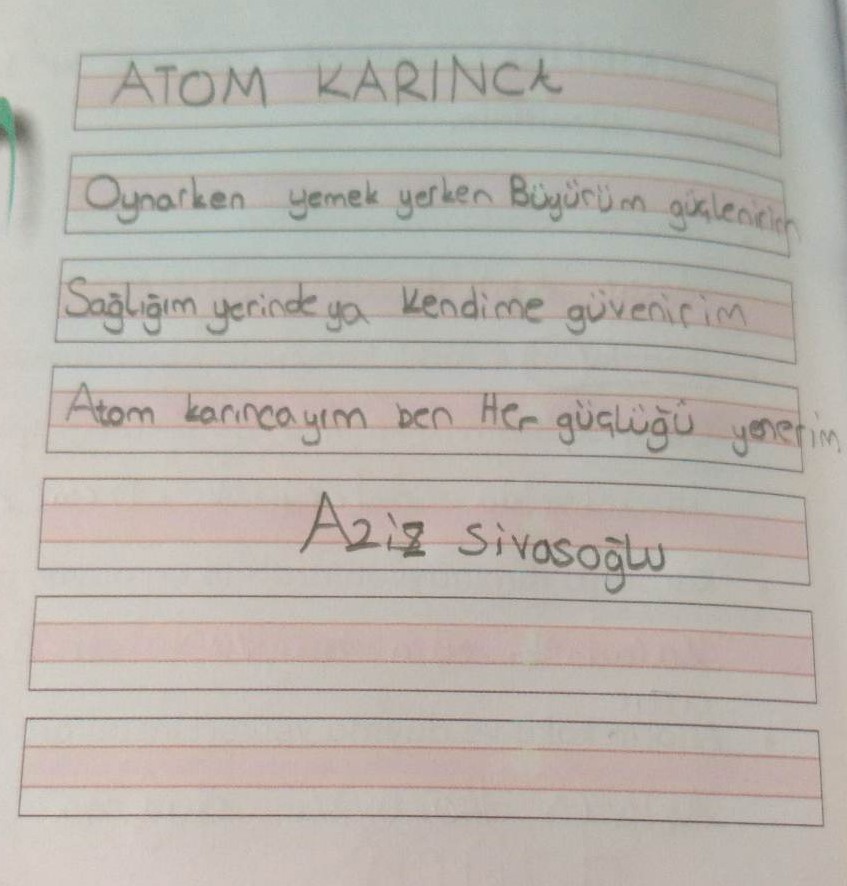 ATOM KARINCA
Oynarken yemek yerken Büyürüm güçlenirim
Sağlığım yerinde ya kendime güvenirim
Atom karıncayım ben Her güçlüğü yenerim
Aziz Sivasoğlu